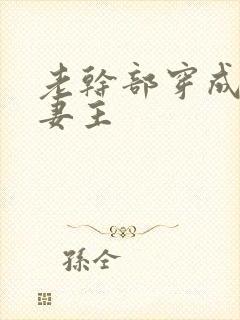 老幹部穿成
妻王
孫全